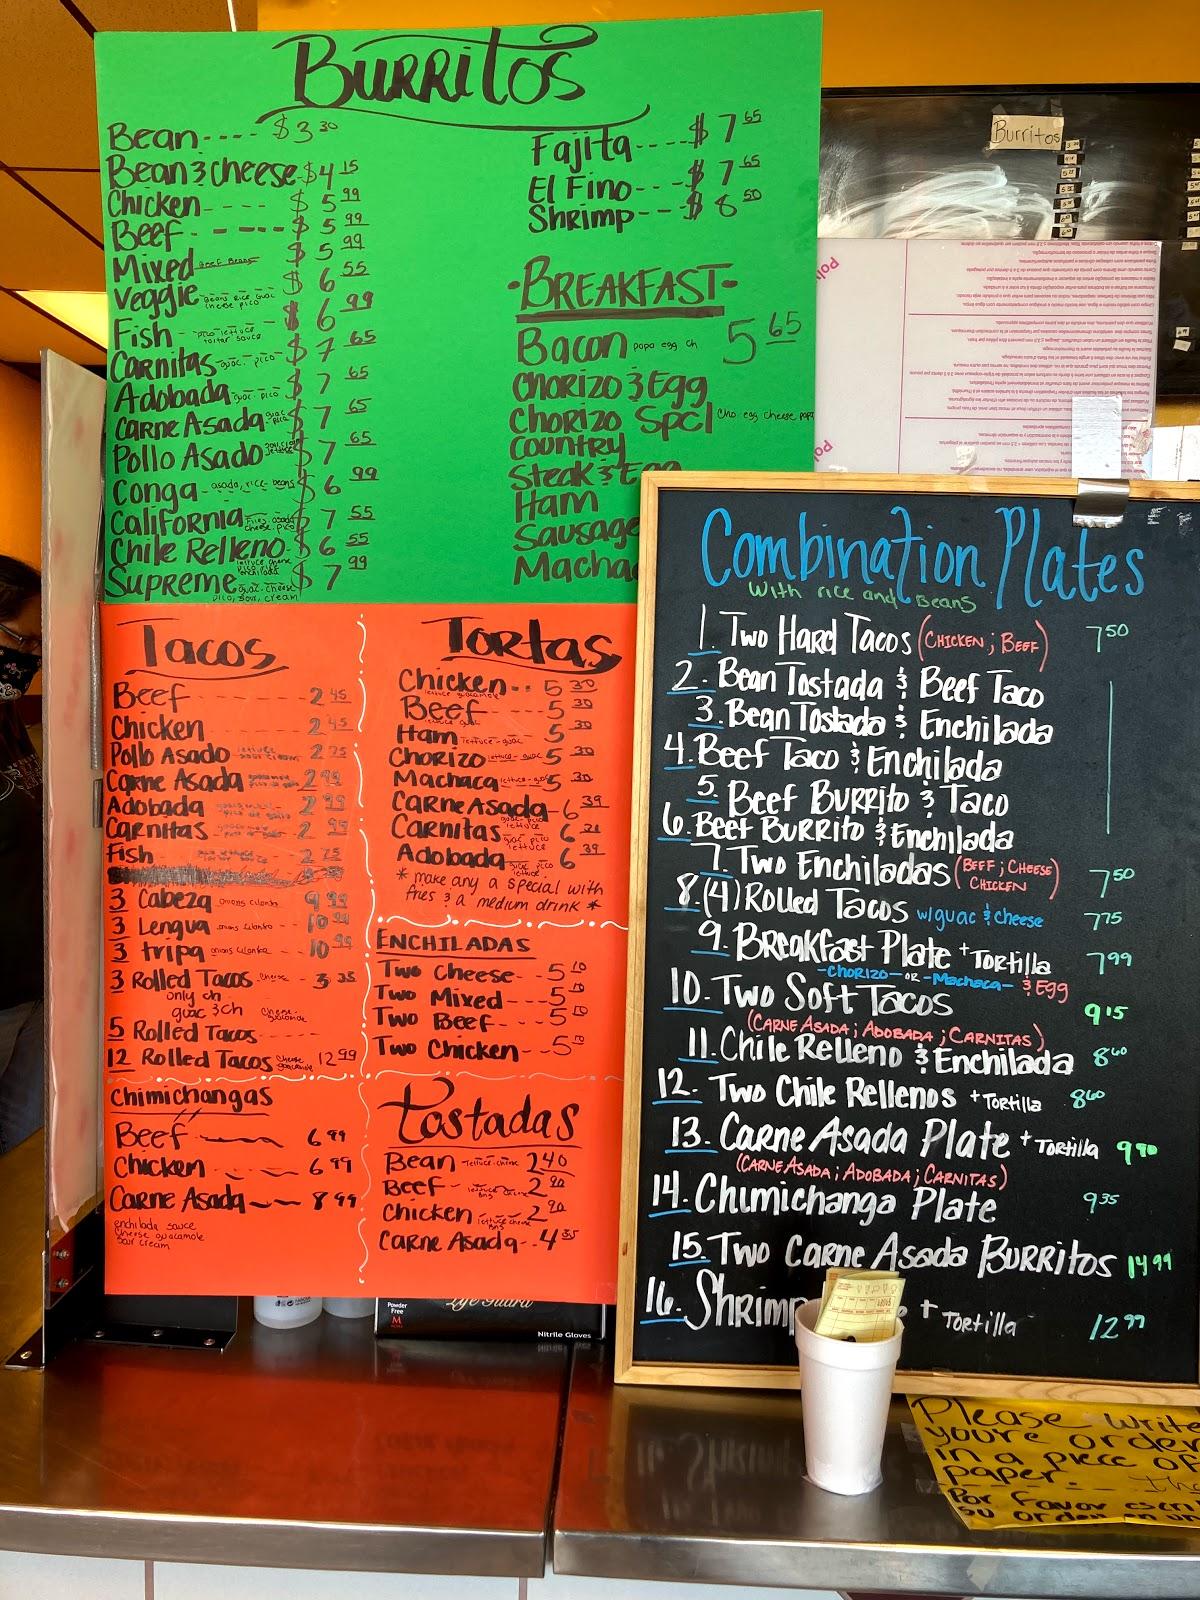 Burritos
Bean---- $3.30
Bean & cheese $4 15
Chicken---- $5 99
Beef---- $5 99
Mixed Beef Beans $5 99
Veggie Beans Rice guac cheese pico $6 55
Fish pico lettuce tartar sauce $6 99
Carnitas guac. pico $7 65
Adobada guac. pico $7 65
Carne Asada guac pico $7 65
Pollo Asado $7 65
Conga asada, rice, beans $6 99
California Fries, asada cheese, pico $7 55
Chile Relleno $6 55
Supreme guac-cheese pico, sour, cream $7 99
Fajita---- $7 65
El Fino--- $7 65
Shrimp--- $8 50
·Breakfast·
Bacon papa egg ch 5 65
Chorizo & Egg
Chorizo Spcl cho egg cheese papa
Country
Steak & Egg
Ham
Sausage
Macha
Tacos
Beef 2 45
Chicken 2 45
Pollo Asado lettuce sour cream 2 75
Carne Asada 2 99
Adobada 2 99
Carnitas 2 99
Fish 2 75
3 Cabeza onions cilantro 9 99
3 Lengua onions cilantro 10 99
3 tripa onions cilantro 10 99
3 Rolled Tacos cheese 3 35
only ch
guac & ch
5 Rolled Tacos cheese-guacamole
12 Rolled Tacos cheese guacamole 12 99
Chimichangas
Beef 6 99
Chicken 6 99
Carne Asada 8 99
enchilada sauce
cheese guacamole
sour cream
Tortas
Chicken-- 5 30
lettuce guacamole
Beef-- 5 30
lettuce guac
Ham lettuce-guac 5 30
Chorizo lettuce-guac 5 30
Machaca lettuce-guac 5 30
Carne Asada 6 39
guac-pico lettuce
Carnitas guac pico lettuce 6
Adobada guac pico lettuce 6 39
* make any a special with
fries & a medium drink *
Enchiladas
Two Cheese-- 5 10
Two Mixed--- 5 10
Two Beef--- 5 10
Two Chicken--- 5 10
Tostadas
Bean lettuce-cheese 2 40
Beef lettuce cheese bns 2 90
Chicken lettuce cheese bns 2 90
Carne Asada-- 4 35
Combination Plates
with rice and Beans
1. Two Hard Tacos (Chicken; Beef) 7 50
2. Bean Tostada & Beef Taco
3. Bean Tostada & Enchilada
4. Beef Taco & Enchilada
5. Beef Burrito & Taco
6. Beef Burrito & Enchilada
7. Two Enchiladas (Beef; Cheese Chicken) 7 50
8. (4) Rolled Tacos w/guac & cheese 7 75
9. Breakfast Plate + Tortilla 7 99
-Chorizo- or -Machaca- & Egg
10. Two Soft Tacos 9 15
(Carne Asada; Adobada; Carnitas)
11. Chile Relleno & Enchilada 8 60
12. Two Chile Rellenos + Tortilla 8 60
13. Carne Asada Plate + Tortilla 9 90
(Carne Asada; Adobada; Carnitas)
14. Chimichanga Plate 9 35
15. Two Carne Asada Burritos 14 99
16. Shrimp + Tortilla 12 99
Burritos
Powder
Free
M
Nitrile Gloves
Please write
youre order
in a piece of
paper.
Por favor escri
su orden en un